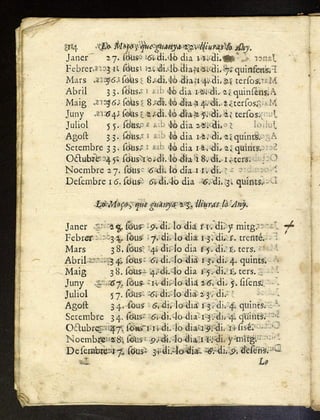 314 Lo Moço, que guanya 22. lliuras lo Any.
Janer 27. sous 6. di. lo dia 11. di.
Febrer 31. sous di. lo dia di. quinsens.
Mars 36. sous 8. di. lo dia 14. di. 2. tersos.
Abril 33. sous. lo dia di. quinsens.
Maig 36. sous 8. di. lo dia 14. di. 2. tersos.
Juny 64. sous 2. di. lo dia 25. di. 2. tersos.
Juliol 55. sous. lo dia 22. di.
Agost 33. sous. lo dia 12. di. 4. quints.
Setembre 33. sous. lo dia 12. di. 4. quints.
Octubre 45. sous 10. di. lo dia 18. di. 1. ters.
Noembre 27. sous 6. di. lo dia 11. di.
Desembre 16. sous 6. di. lo dia 6. di. 3. quints.
Lo Moço, que guanya 23. lliuras lo Any.
Janer 28. sous 9. di. lo dia 11. di. y mitg.
Febrer 34. sous 7. di. lo dia 13. di. 1. trenté.
Mars 38. sous 4. di. lo dia 15. di. 1. ters.
Abril 34. sous 6. di. lo dia 13. di. 4. quints.
Maig 38. sous 4. di. lo dia 15. di. 1. ters.
Juny 67. sous 1. di. lo dia 26. di. 5. sisens.
Juliol 57. sous 6. di. lo dia 23. di.
Agost 34. sous 6. di. lo dia 13. di. 4. quints.
Setembre 34. sous 6. di. lo dia 13. di. 4. quints.
Octubre 47. sous 11. di. lo dia 19. di. 1. sisé.
Noembre 28. sous 9. di. lo dia 11. di. y mitg.
Desembre 17. sous 3. di. lo dia 6. di. 9. desens.
Lo